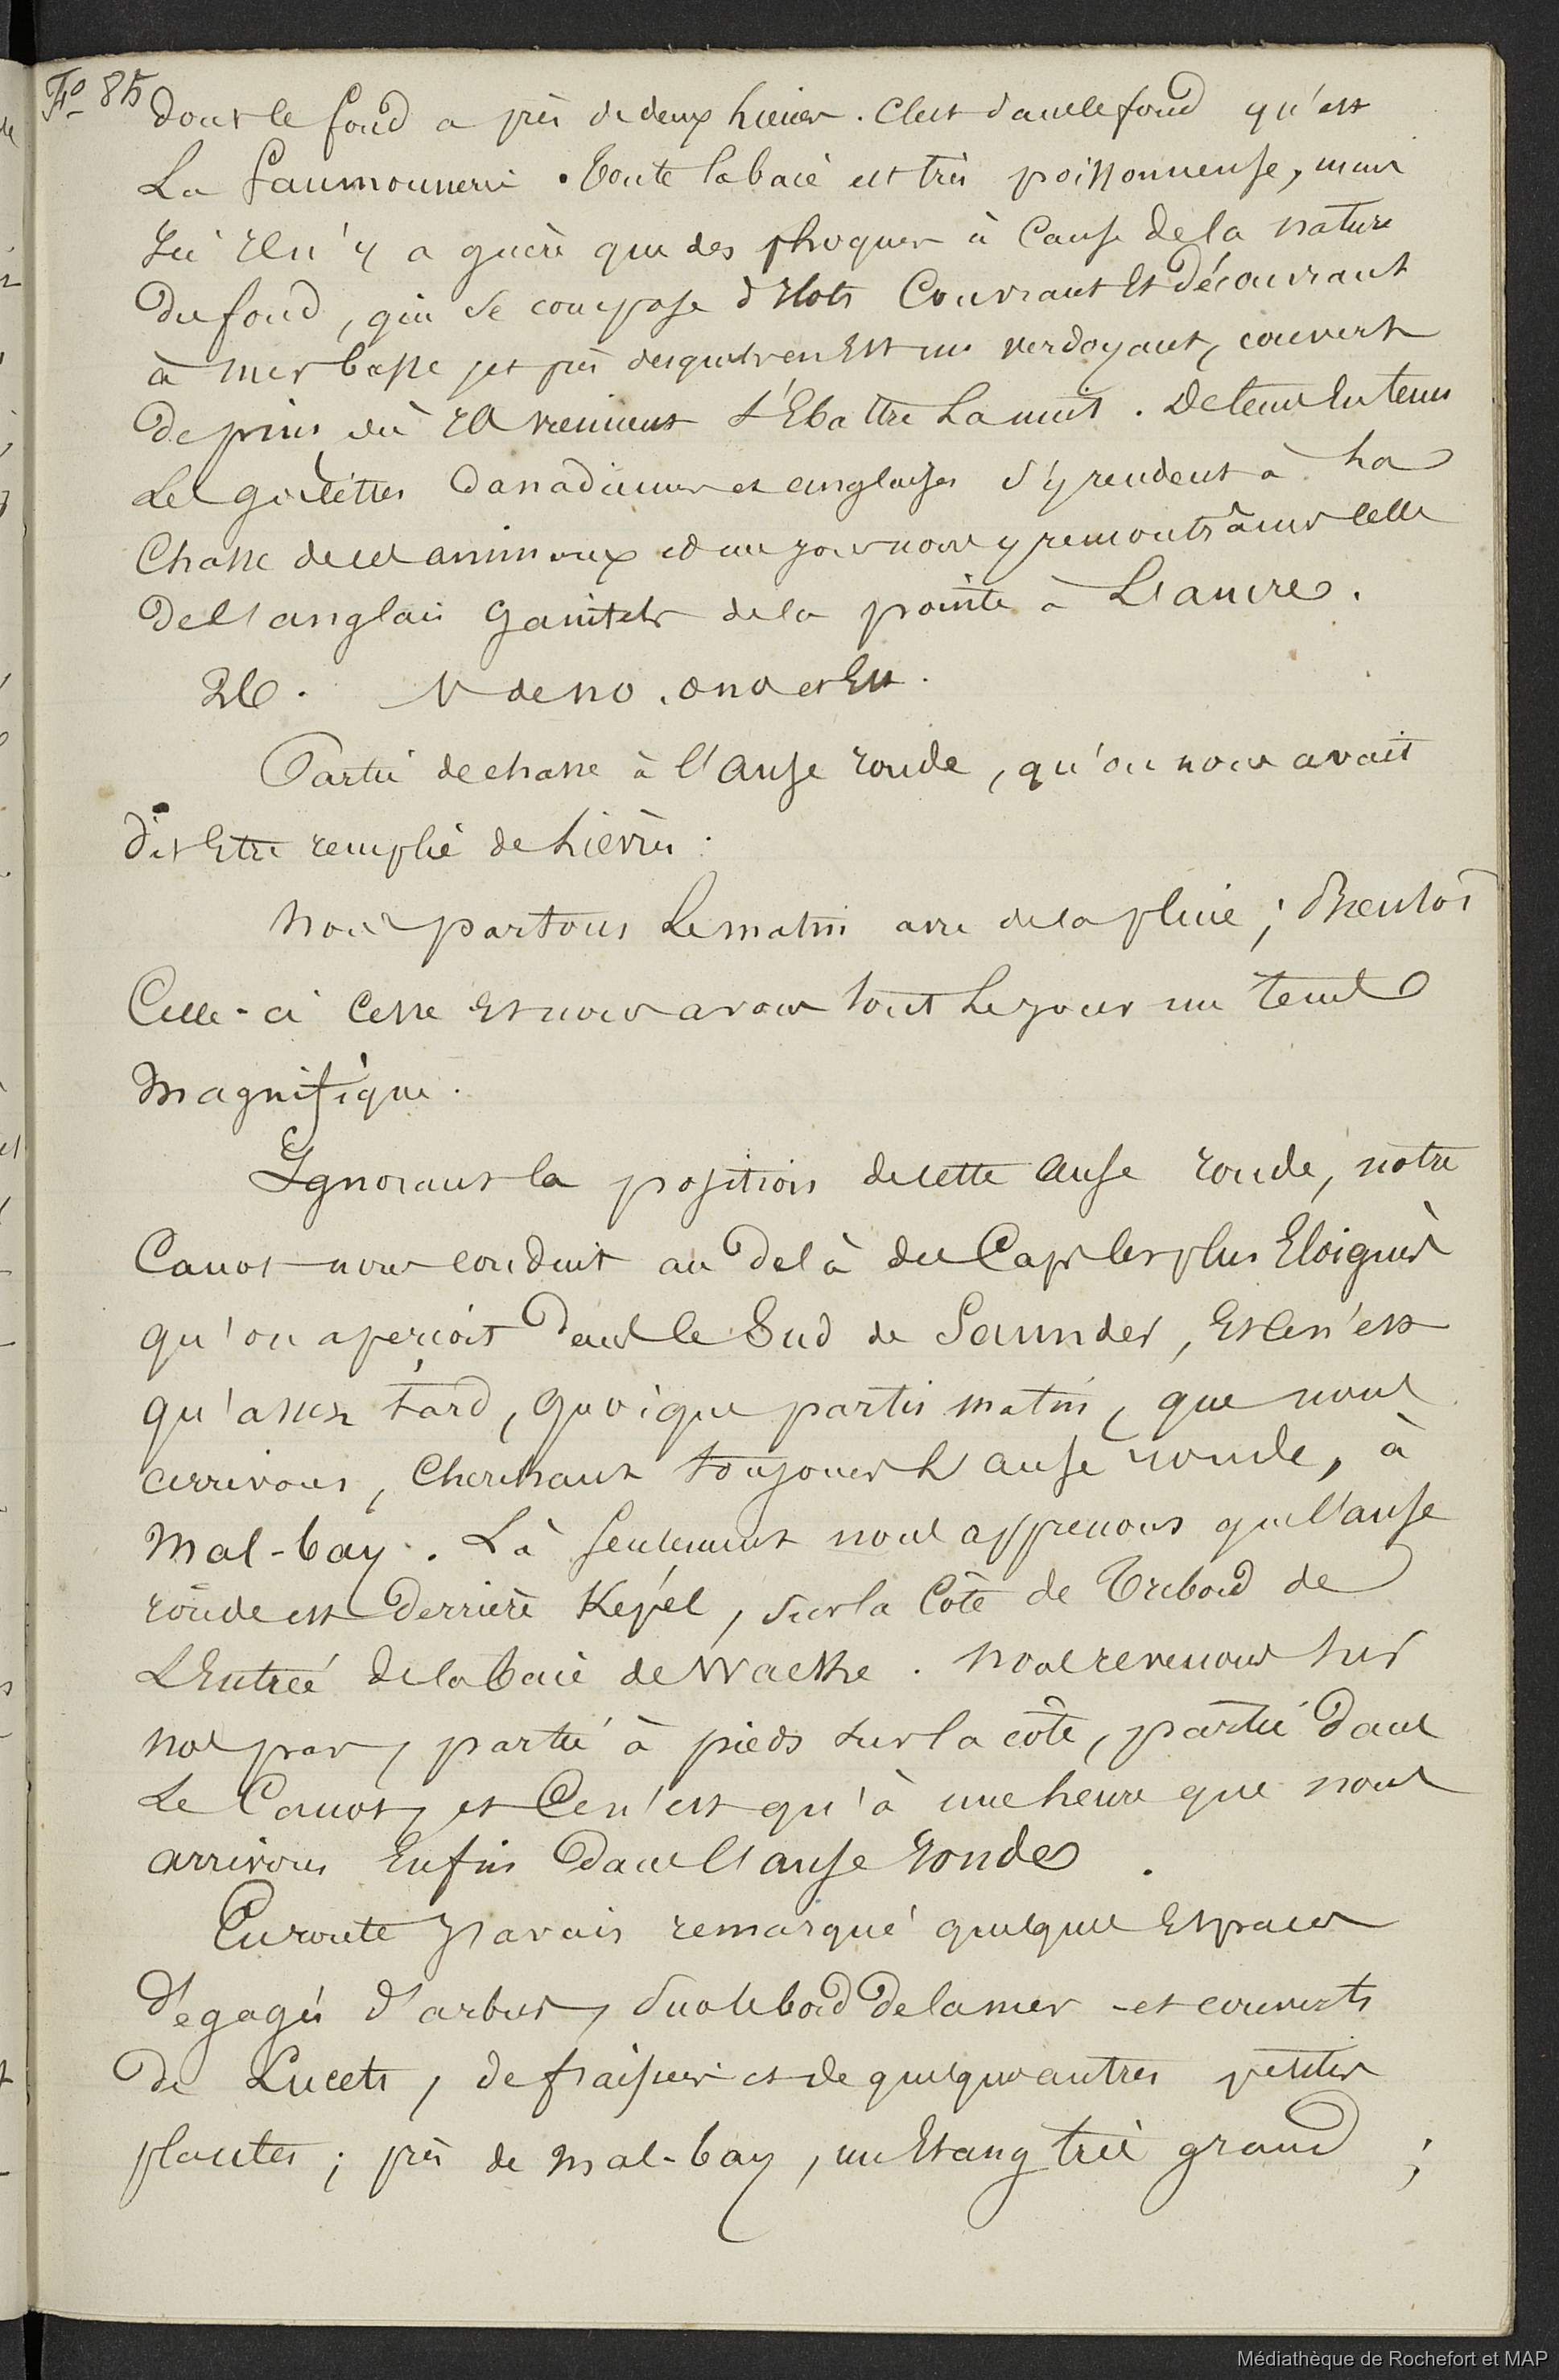 Fo 85
dont le fond a près de deux lieues. C'est dans le fond qu'est
La Saumonnerie. Toute la baie est très poissonneuse, mais
ici Il n'y a guère que des phoques à Cause de la nature
Du fond, qui se compose d'Ilots Couvrant Et Découvrant
à mer basse, et près desquels en Est un verdoyant, couvert
De pins, où Ils viennent s'Ebattre La nuit. De tems En tems
Les goëlettes Canadiennes et anglaises s'y rendent à La
Chasse de ces animaux et un jour nous y remontrâmes celle
De l'anglais de la pointe à L'ancre.
26. V de no. ono et Est.
Partie de chasse à l'anse ronde, qu'on nous avait
dit Etre remplie de Lièvres.
Nous partons Le matin avec de la pluie; Bientôt
Celle-ci Cesse Et nous avons tout Le jour un tems
Magnifique.
Ignorant la position de cette anse ronde, notre
Canot nous conduit au Delà du Cap les plus Eloignés
qu'on aperçoit Dans le Sud de Saunders, Et ce n'est
qu'assez tard, quoique partis matin, que nous
arrivons, Cherchant toujours L'anse ronde, à
Mal-bay. Là seulement nous apprenons que l'anse
ronde est Derrière Képel, sur la Côte de Tribord de
L'Entrée de la baie de . Nous revenons sur
nos pas, partie à pieds sur la côte, partie Dans
Le Canot, et Ce n'est qu'à une heure que nous
arrivons Enfin Dans l'anse ronde.
En route j'avais remarqué quelques Espaces
Dégagés d'arbres, sur le bord De la mer et couverts
De Lucets, de fraisiers et de quelques autres petites
plantes; près de Mal-bay, un Etang très grand;
Médiathèque de Rochefort et MAP